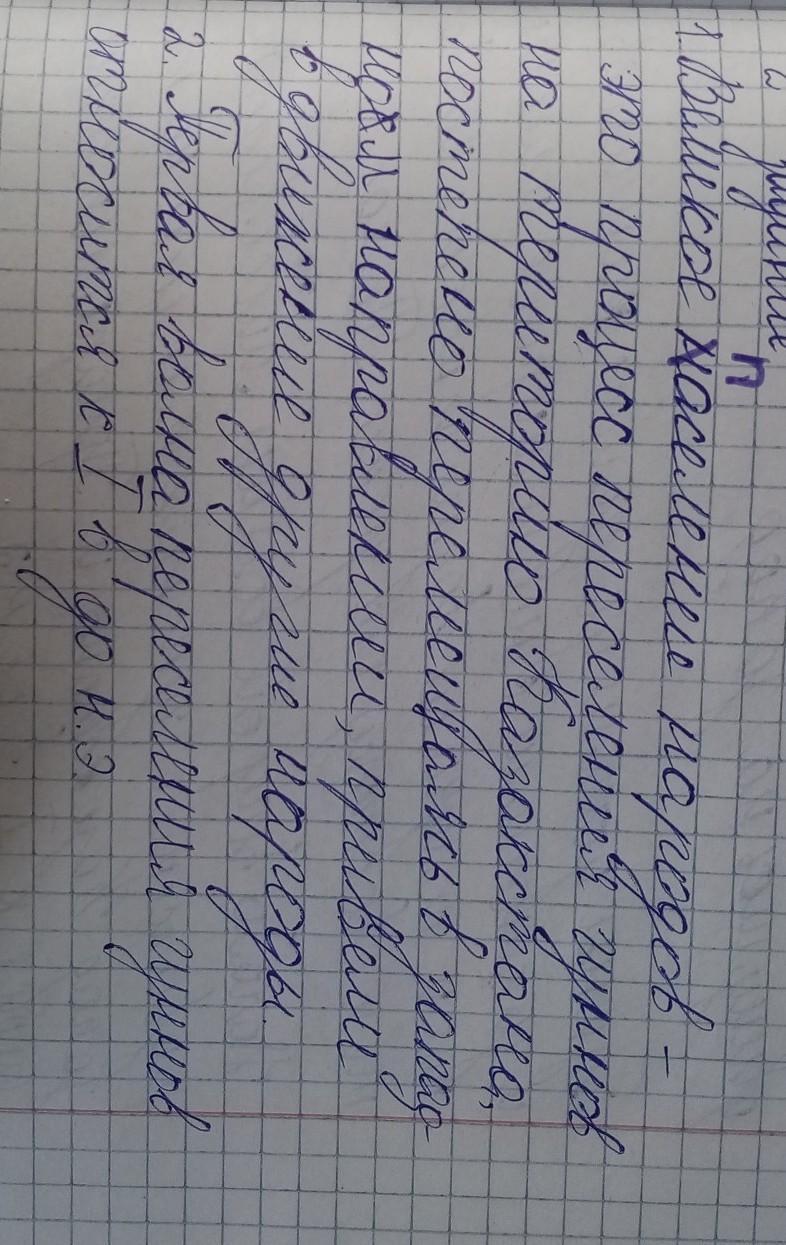 п
1. Великое население народов -
это процесс переселения гуннов
на територию Казакстана,
постепено перемещаясь в запад-
ном направлении, привели
в движение другие народы.
2. Первая волна переселения гуннов
относится к I в до н.э